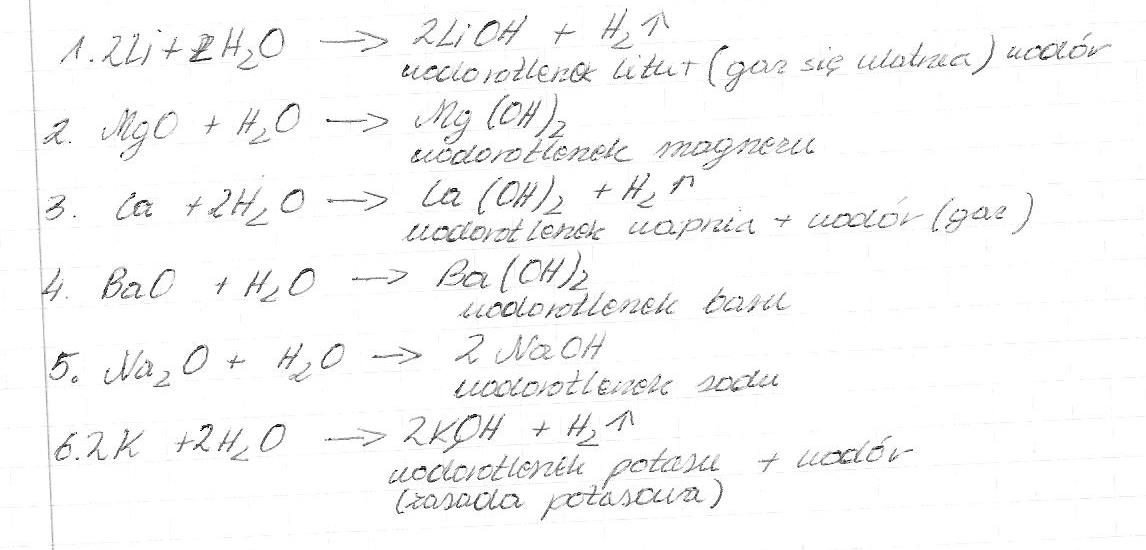 1. 2Li + 2H₂O → 2LiOH + H₂↑
wodorotlenek litu + (gaz się ulatnia) wodór
2. MgO + H₂O → Mg(OH)₂
wodorotlenek magnezu
3. Ca + 2H₂O → Ca(OH)₂ + H₂↑
wodorotlenek wapnia + wodór (gaz)
4. BaO + H₂O → Ba(OH)₂
wodorotlenek baru
5. Na₂O + H₂O → 2NaOH
wodorotlenek sodu
6. 2K + 2H₂O → 2KOH + H₂↑
wodorotlenek potasu + wodór
(zasada potasowa)